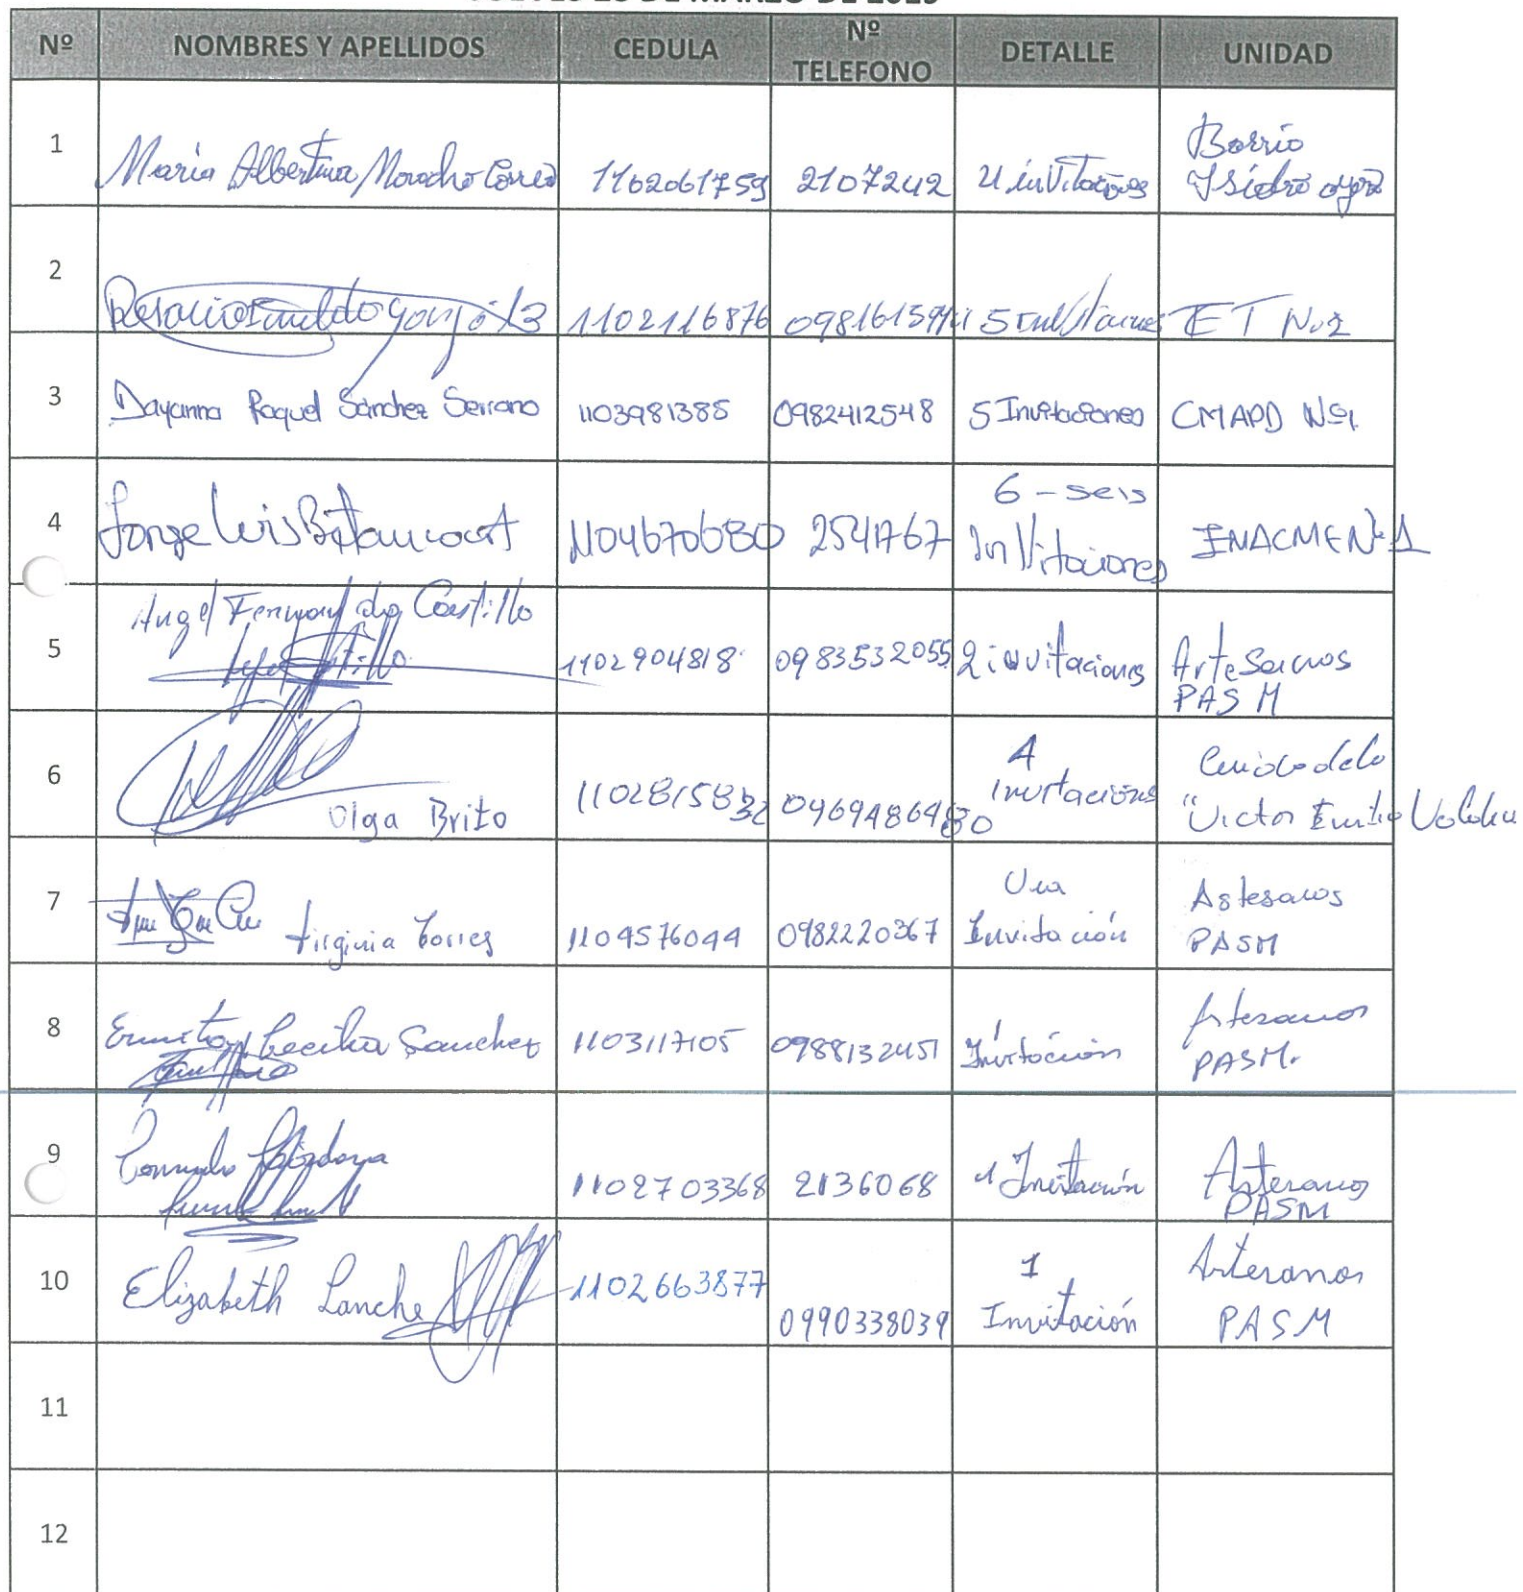 Nº NOMBRES Y APELLIDOS CEDULA Nº TELEFONO DETALLE UNIDAD
1 Maria Albertina Morocho 1102061759 2107242 4 invitaciones Barrio Isidro ayora
2 1102116876 5 ET Nº2
3 Dayanna Raquel Sánchez Serrano 1103981385 0982412548 5 Invitaciones CMAPD Nº1.
4 Jorge Luis Betancourt 1104670680 2541767 6 - seis Invitaciones ENACMEN-1
5 Angel Fernando Castillo 1102904818 0983532055 2 invitaciones Artesanos PASM
6 Olga Brito 4 invitaciones "Victor Emilio
7 Virginia Torres 1104576044 0982220367 Una Invitación Artesanos PASM
8 Cecilia Sanchez 1103117105 0988132451 Invitación Artesanos PASM.
9 1102703368 2136068 1 Invitación Artesanos PASM
10 Elizabeth Lanche 1102663877 0990338039 1 Invitación Artesanos PASM
11
12